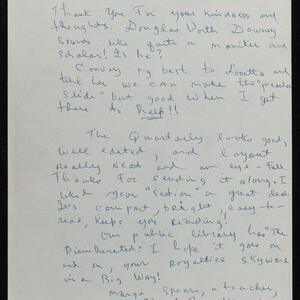 Thank You For your kindness and
thoughts. Douglas Worth Downey
sounds like quite a moniker and
scholar! Is he?
Convey my best to and
tell her we can make the "
Slide" but good when I get
there to Help!!
The Quarterly looks good,
well edited, and layout
really neat and an eye-full.
Thanks For sending it along. I
liked your "section" a great deal.
It's compact, bright, easy-to-
read, keeps you Reading!
Our public library has "The
Disinherited". I hope it goes on
and on, your royalties skyward
in a Big Way!
Marge Spears, a teacher,